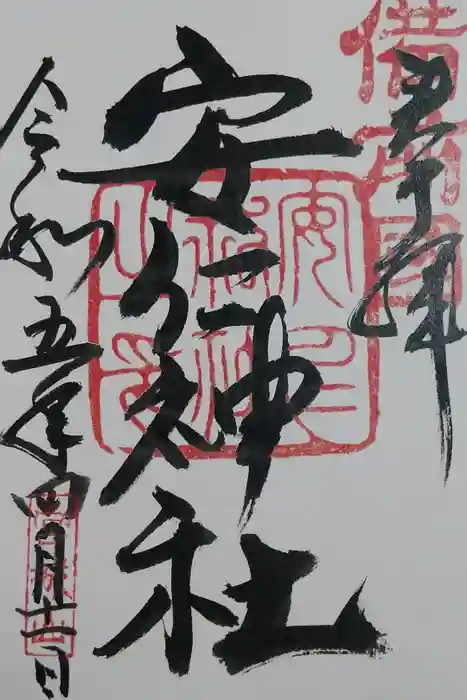 奉拝
安仁神社
令和五年四月十一日